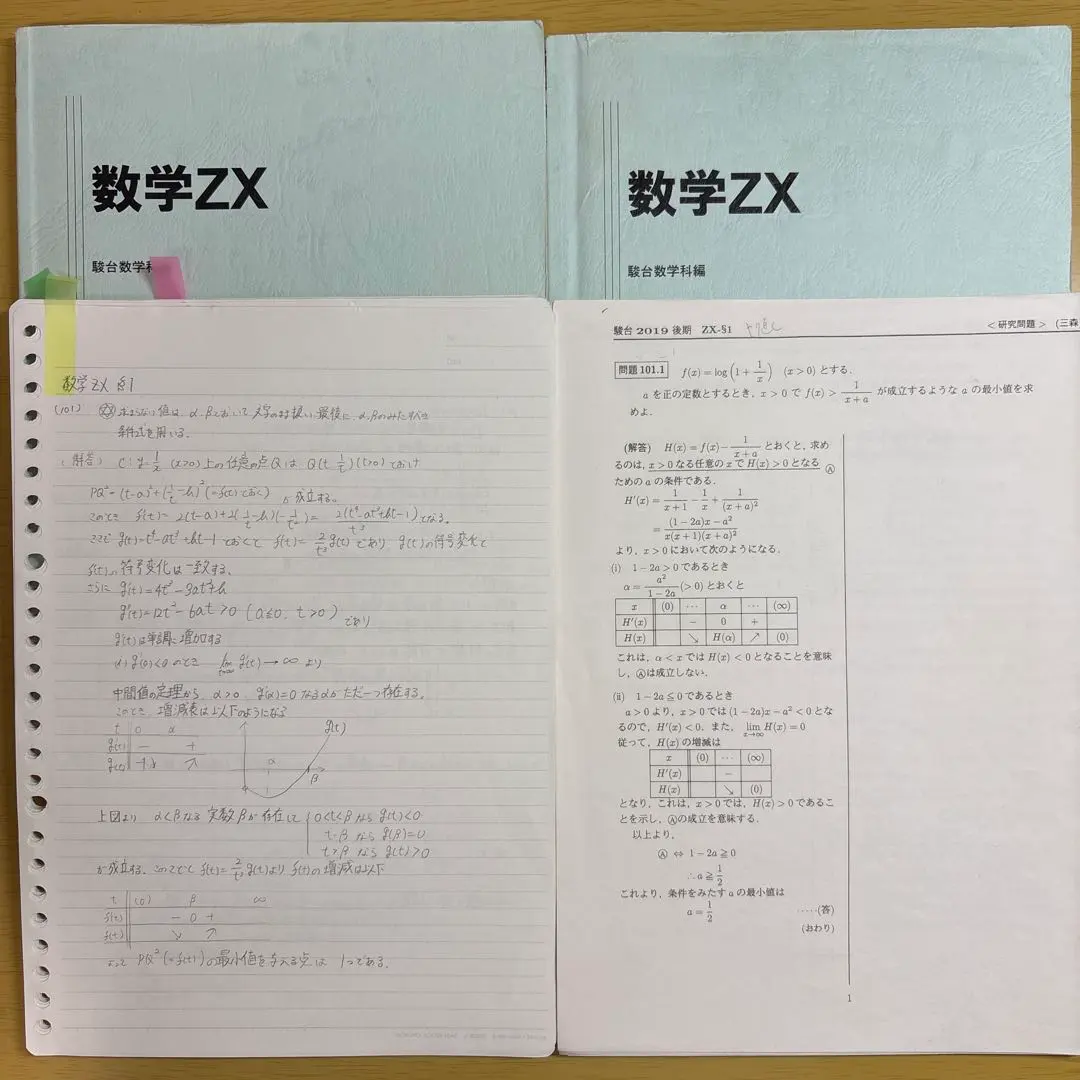 数学ZX
駿台数学科
数学ZX
駿台数学科編
数学ZX §1
(101) 求まらない値は、α、βとおいて文字のまま扱い、最後に、α、βのみたすべき
条件式を用いる。
(解答) C: y=1/x (x>0)上の任意の点Qは Q(t, 1/t)(t>0)とおけ
PQ²=(t-a)²+(1/t-b)²(=f(t)とおく)が成立する。
このとき f'(t)=2(t-a)+2(1/t-b)(-1/t²)=2(t⁴-at³+bt-1)/t³となる。
ここで g(t)=t⁴-at³+bt-1とおくと f'(t)=2/t³ g(t)であり、g(t)の符号変化と
f'(t)の符号変化は一致する。
さらに g'(t)=4t³-3at²+b
g''(t)=12t²-6at>0 (a≦0, t>0)であり
g'(t)は単調に増加する
g'(0)<0のとき lim g'(t)→∞ より
中間値の定理から、α>0、g'(α)=0なるαがただ一つ存在する。
このとき、増減表は以下のようになる
t 0 α
g'(t) - +
g(t) -1 ↘ ↗
g(t)
α
β
上図より α<βなる定数βが存在して 0<t<βなら g(t)<0
t=βなら g(β)=0
t>βなら g(t)>0
が成立する。このことと f'(t)=2/t³ g(t)より f(t)の増減は以下
t (0) β ∞
f'(t) - 0 +
f(t) ↘ ↗
よって PQ²(=f(t))の最小値を与える点は 1つである。
駿台 2019 後期 ZX-§1
<研究問題> (三森
問題 101.1 f(x)=log(1+1/x) (x>0)とする.
aを正の定数とするとき, x>0で f(x)>1/(x+a) が成立するような a の最小値を求
めよ.
(解答) H(x)=f(x)-1/(x+a) とおくと, 求め
るのは, x>0なる任意のxでH(x)>0となる Ⓐ
ための a の条件である.
H'(x)=1/(x+1)-1/x+1/(x+a)²
=((1-2a)x-a²)/(x(x+1)(x+a)²)
より, x>0において次のようになる.
(i) 1-2a>0であるとき
α=a²/(1-2a)(>0)とおくと
x (0) ⋯ α ⋯ (∞)
H'(x) - 0 +
H(x) ↘ H(α) ↗ (0)
これは, α<xではH(x)<0となることを意味
し, Ⓐは成立しない.
(ii) 1-2a≦0であるとき
a>0より, x>0では(1-2a)x-a²<0とな
るので, H'(x)<0. また, lim x→∞ H(x)=0
従って, H(x)の増減は
x (0) ⋯ (∞)
H'(x) -
H(x) ↘ (0)
となり, これは, x>0では, H(x)>0であるこ
とを示し, Ⓐの成立を意味する.
以上より,
Ⓐ ⇔ 1-2a≦0
∴a≧1/2
これより, 条件をみたす a の最小値は
a=1/2 ⋯⋯(答)
(おわり)
1